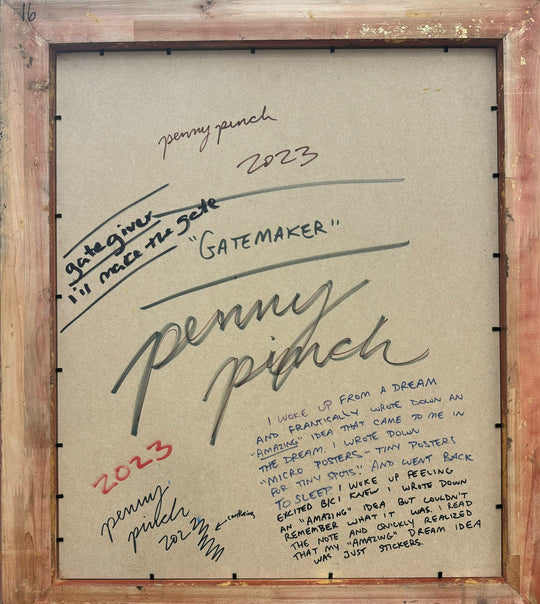 16
penny pinch
2023
gategiver
i'll make the gate
"GATEMAKER"
penny
pinch
2023
penny
pinch
2022
confusing
I WOKE UP FROM A DREAM
AND FRANTICALLY WROTE DOWN AN
"AMAZING" IDEA THAT CAME TO ME IN
THE DREAM. I WROTE DOWN
"MICRO POSTERS - TINY POSTERS
FOR TINY SPOTS." AND WENT BACK
TO SLEEP. I WOKE UP FEELING
EXCITED B/C I KNEW I WROTE DOWN
AN "AMAZING" IDEA BUT COULDN'T
REMEMBER WHAT IT WAS. I READ
THE NOTE AND QUICKLY REALIZED
THAT MY "AMAZING" DREAM IDEA
WAS JUST STICKERS.